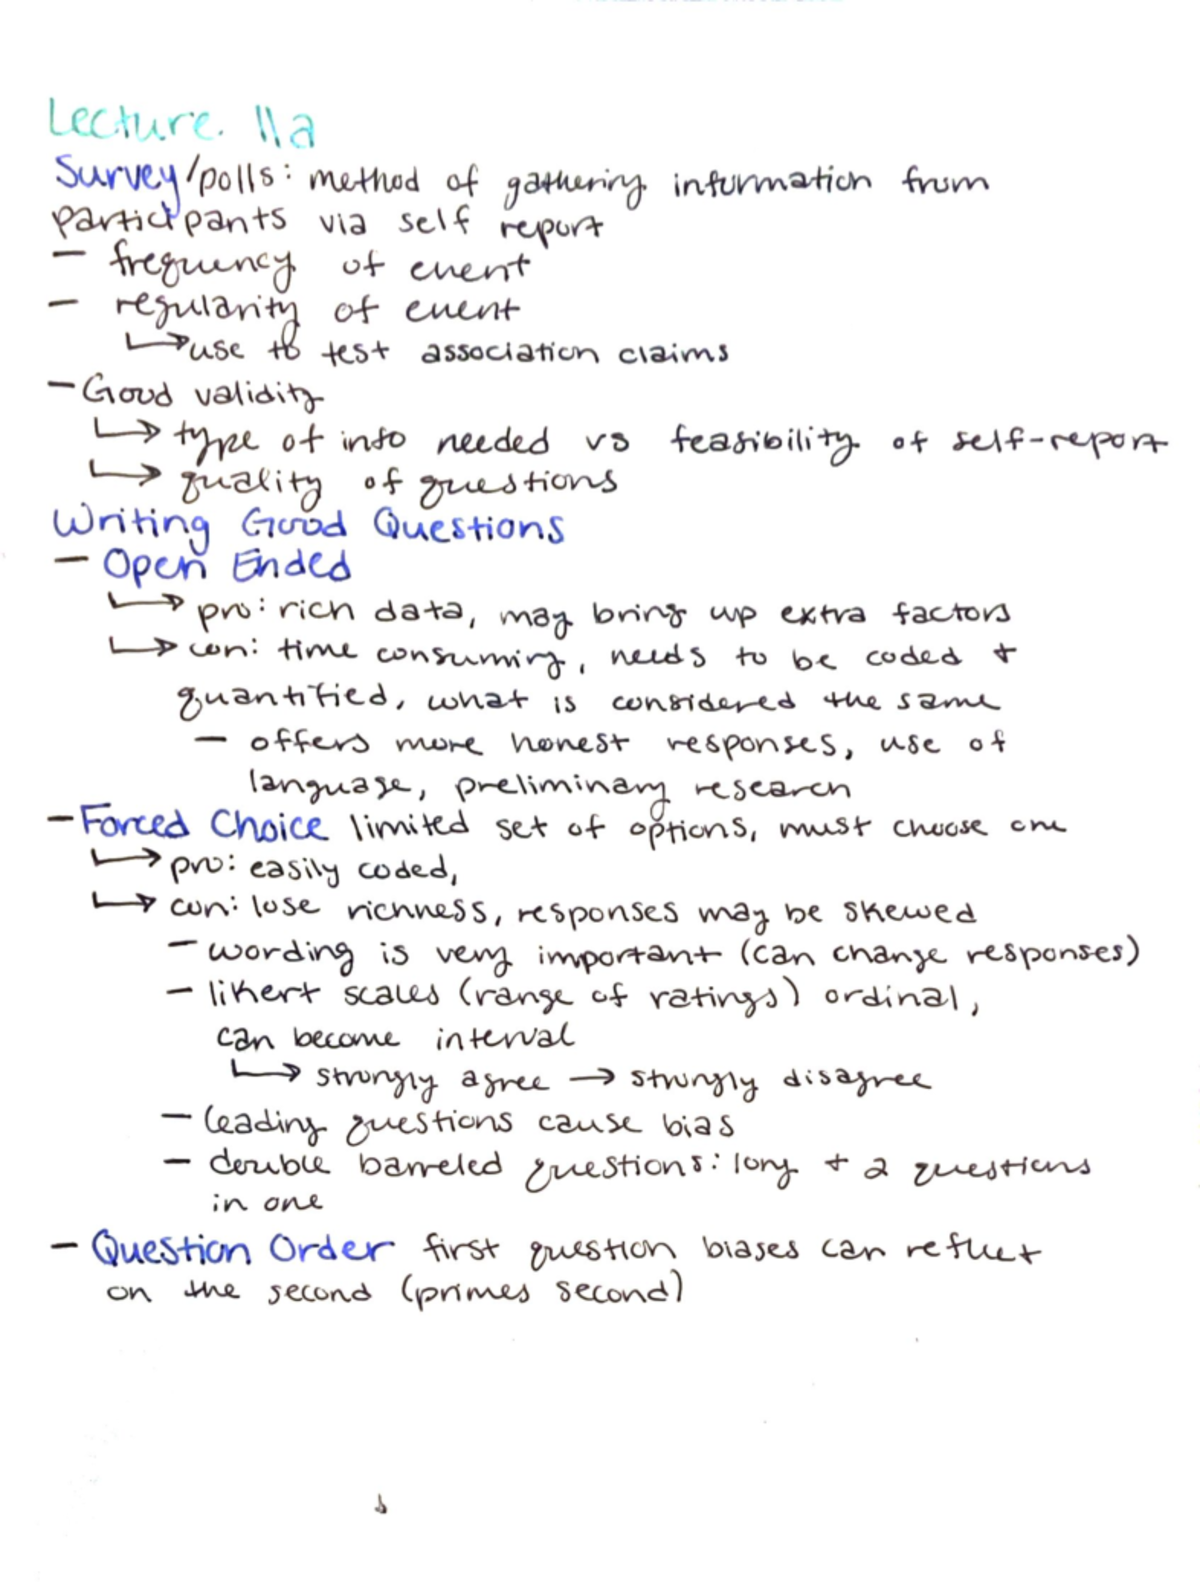 Lecture. 11a
Survey/polls: method of gathering information from
participants via self report
- frequency of event
- regularity of event
↳ use to test association claims
- Good validity
↳ type of info needed vs feasibility of self-report
↳ quality of questions
Writing Good Questions
- Open Ended
↳ pro: rich data, may bring up extra factors
↳ con: time consuming, needs to be coded +
quantified, what is considered the same
- offers more honest responses, use of
language, preliminary research
- Forced Choice limited set of options, must choose one
↳ pro: easily coded,
↳ con: lose richness, responses may be skewed
- wording is very important (can change responses)
- likert scales (range of ratings) ordinal,
can become interval
↳ strongly agree → strongly disagree
- leading questions cause bias
- double barreled questions: long + 2 questions
in one
- Question Order first question biases can reflect
on the second (primes second)